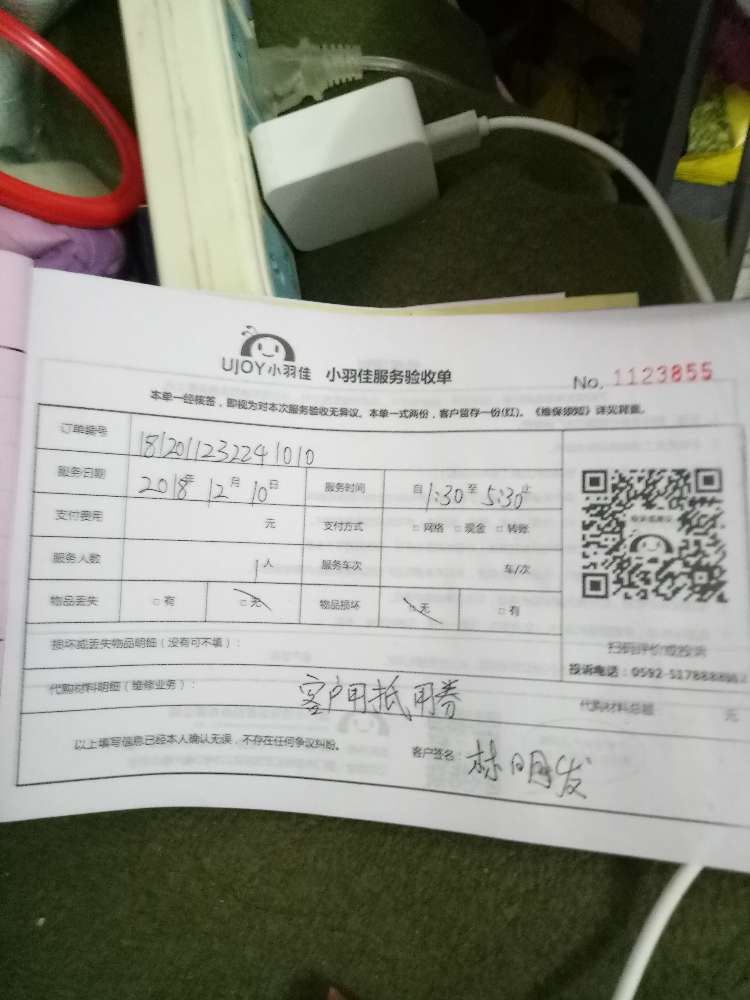 UJOY小羽佳 小羽佳服务验收单
No. 1123855
本单一经核签，即视为对本次服务验收无异议。本单一式两份，客户留存一份(红)。《维保须知》详见背面。
订单编号 181201123224101010
服务日期 2018年12月10日 服务时间 自1:30至5:30止
支付费用 元 支付方式 □网络 □现金 □转账
服务人数 1人 服务车次 车/次
物品丢失 □有 □无 物品损坏 □无 □有
损坏或丢失物品明细（没有可不填）：
扫码评价或投诉
投诉电话：0592-5178888
代购材料明细（维修业务）： 客户用抵用券 代购材料总额 元
以上填写信息已经本人确认无误，不存在任何争议纠纷。 客户签名：林明发